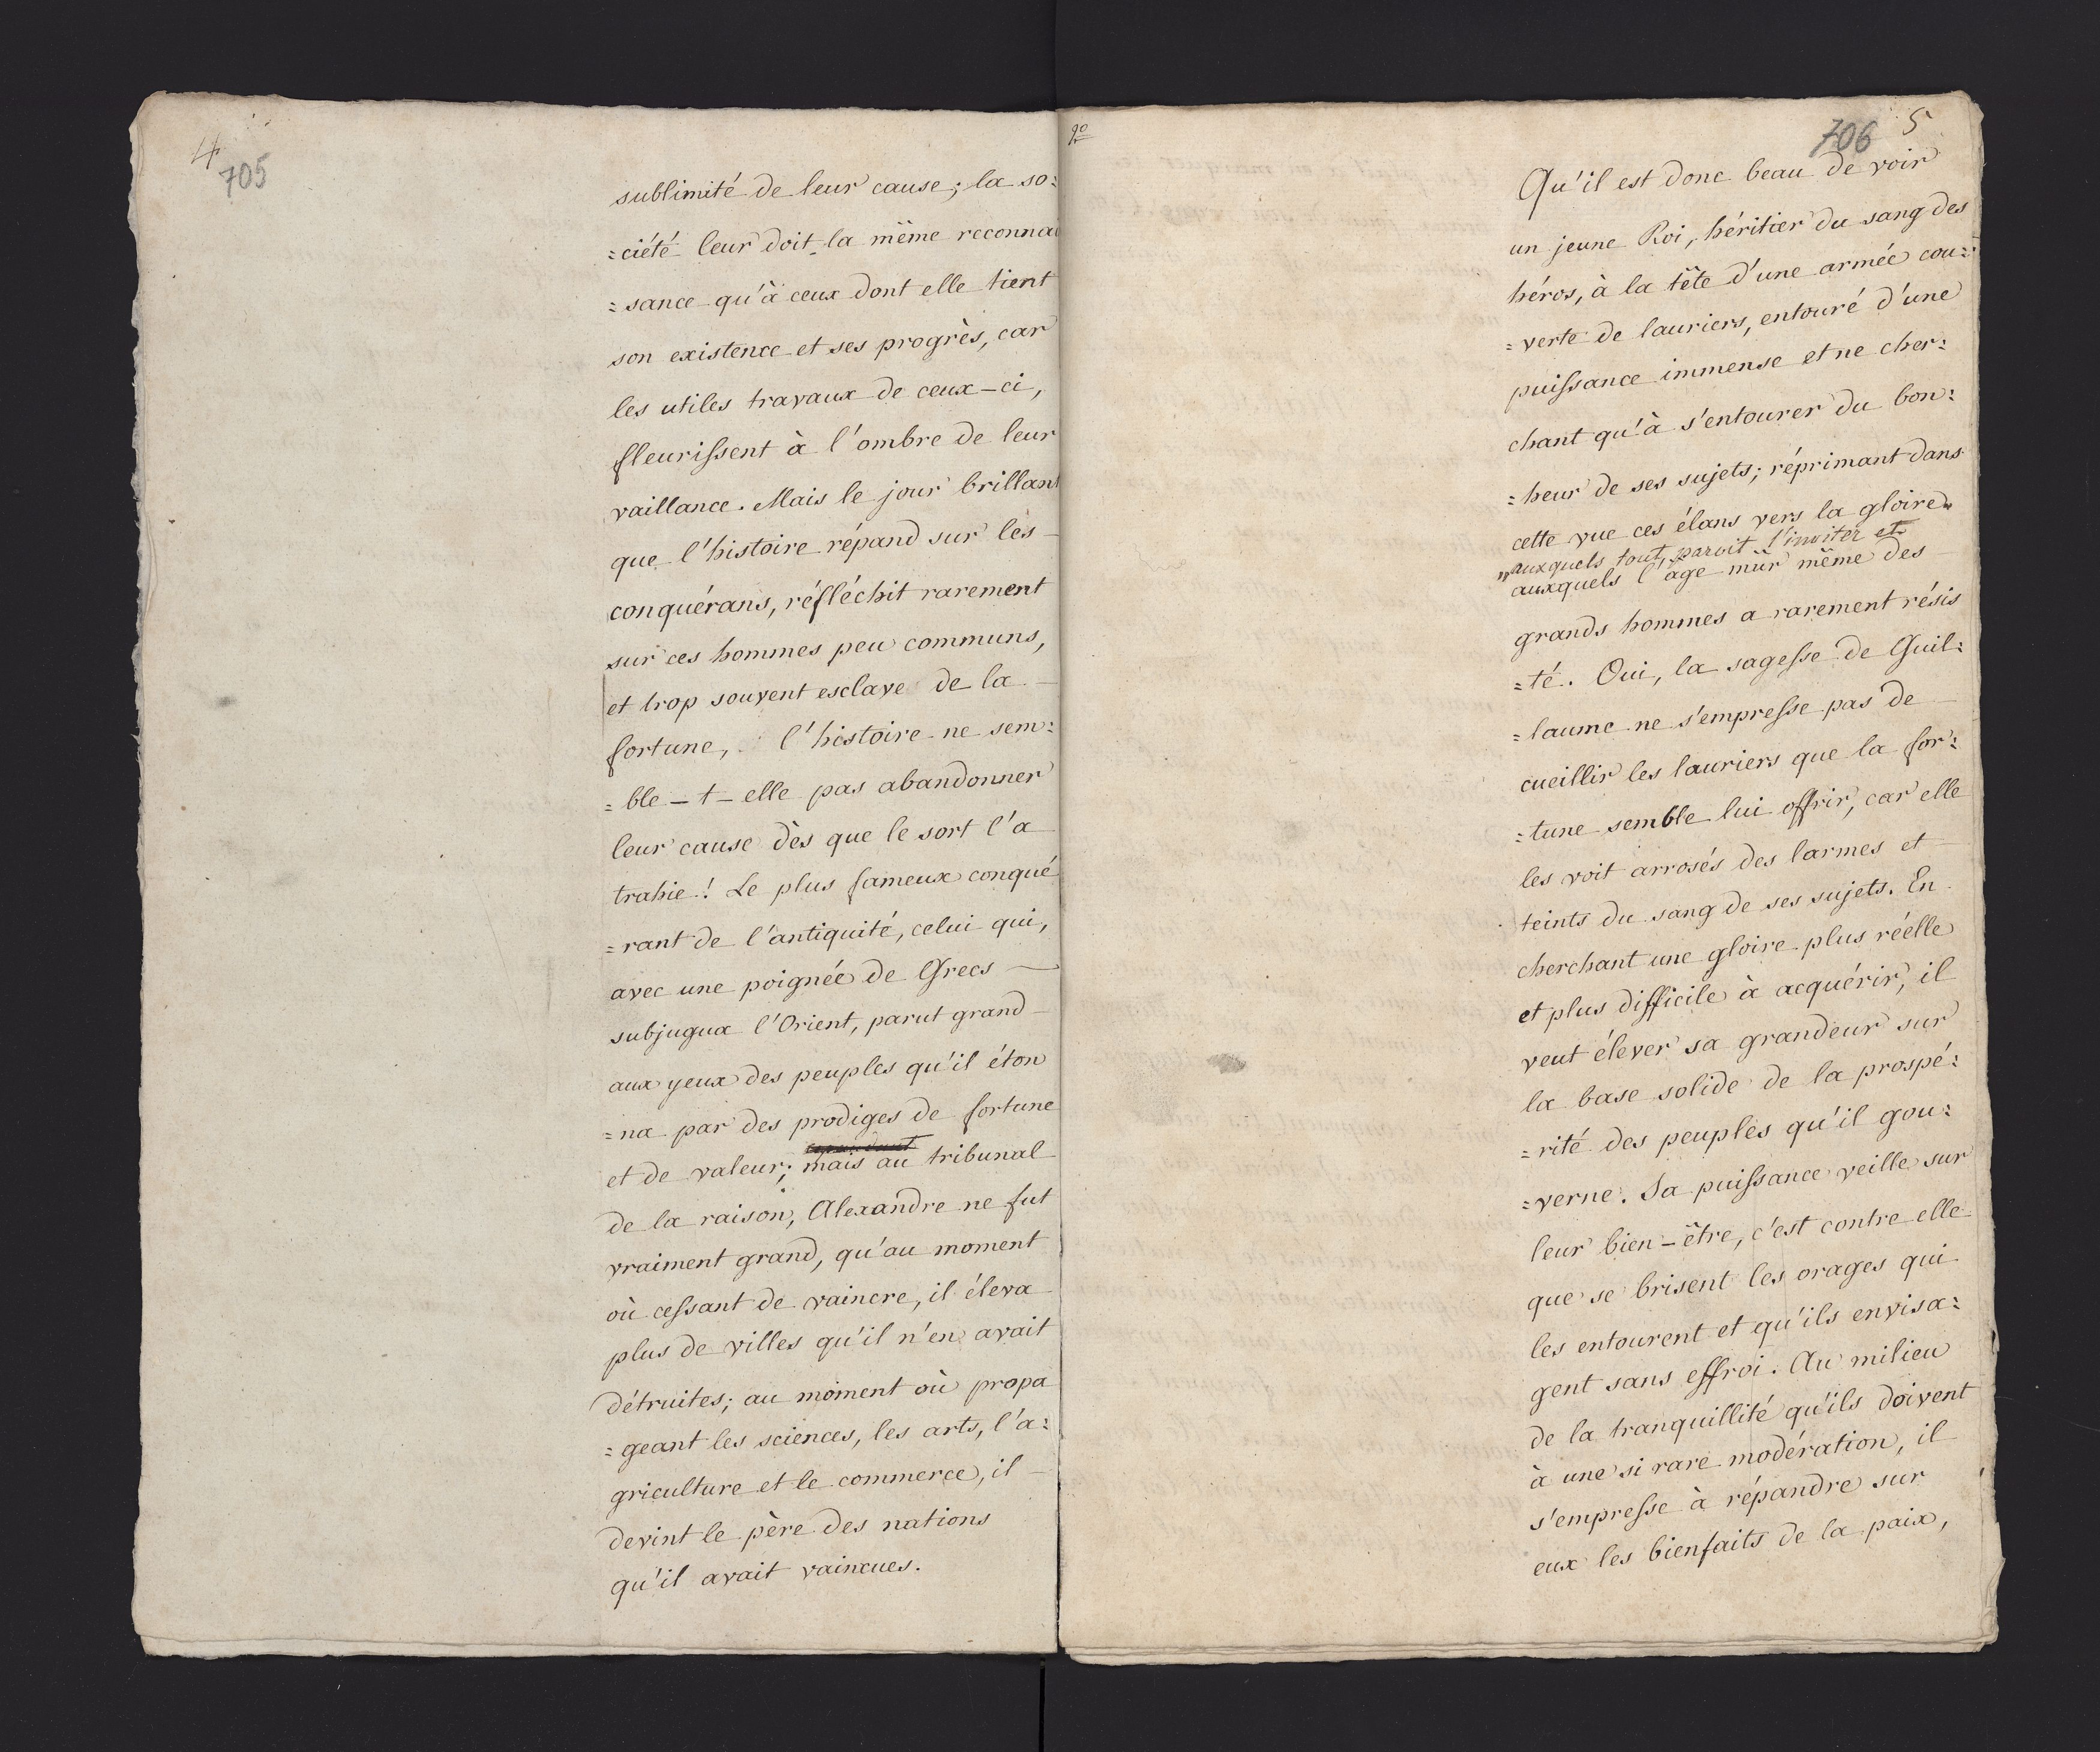 4
705
sublimité de leur cause; la so:
=ciété leur doit la même reconnai
=sance qu'à ceux dont elle tient
son existence et ses progrès, car
les utiles travaux de ceux-ci,
fleurissent à l'ombre de leur
vaillance. Mais le jour brillant
que l'histoire répand sur les
conquérans, réfléchit rarement
sur ces hommes peu communs,
et trop souvent esclave de la
fortune, l'histoire ne sem:
=ble-t-elle pas abandonner
leur cause dès que le sort l'a
trahie! Le plus fameux conqué
=rant de l'antiquité, celui qui,
avec une poignée de Grecs
subjugua l'Orient, parut grand
aux yeux des peuples qu'il éton
=na par des prodiges de fortune
et de valeur; mais au tribunal
de la raison, Alexandre ne fut
vraiment grand, qu'au moment
où cessant de vaincre, il éleva
plus de villes qu'il n'en avait
détruites; au moment où propa
=geant les sciences, les arts, l'a:
griculture et le commerce, il
devint le père des nations
qu'il avait vaincues.
2º
706 5
Qu'il est donc beau de voir
un jeune Roi, héritier du sang des
héros, à la tête d'une armée cou:
=verte de lauriers, entouré d'une
puissance immense et ne cher:
chant qu'à s'entourer du bon:
=heur de ses sujets; réprimant dans
cette vue ces élans vers la gloire
auxquels tout paroit l'inviter et
auxquels l'âge mûr même des
grands hommes a rarement résis
=té. Oui, la sagesse de Guil:
=laume ne s'empresse pas de
cueillir les lauriers que la for:
=tune semble lui offrir, car elle
les voit arrosés des larmes et
teints du sang de ses sujets. En
cherchant une gloire plus réelle
et plus difficile à acquérir, il
veut élever sa grandeur sur
la base solide de la prospé:
=rité des peuples qu'il gou:
=verne. Sa puissance veille sur
leur bien-être, c'est contre elle
que se brisent les orages qui
les entourent et qu'ils envisa:
gent sans effroi. Au milieu
de la tranquillité qu'ils doivent
à une si rare modération, il
s'empresse à répandre sur
eux les bienfaits de la paix,